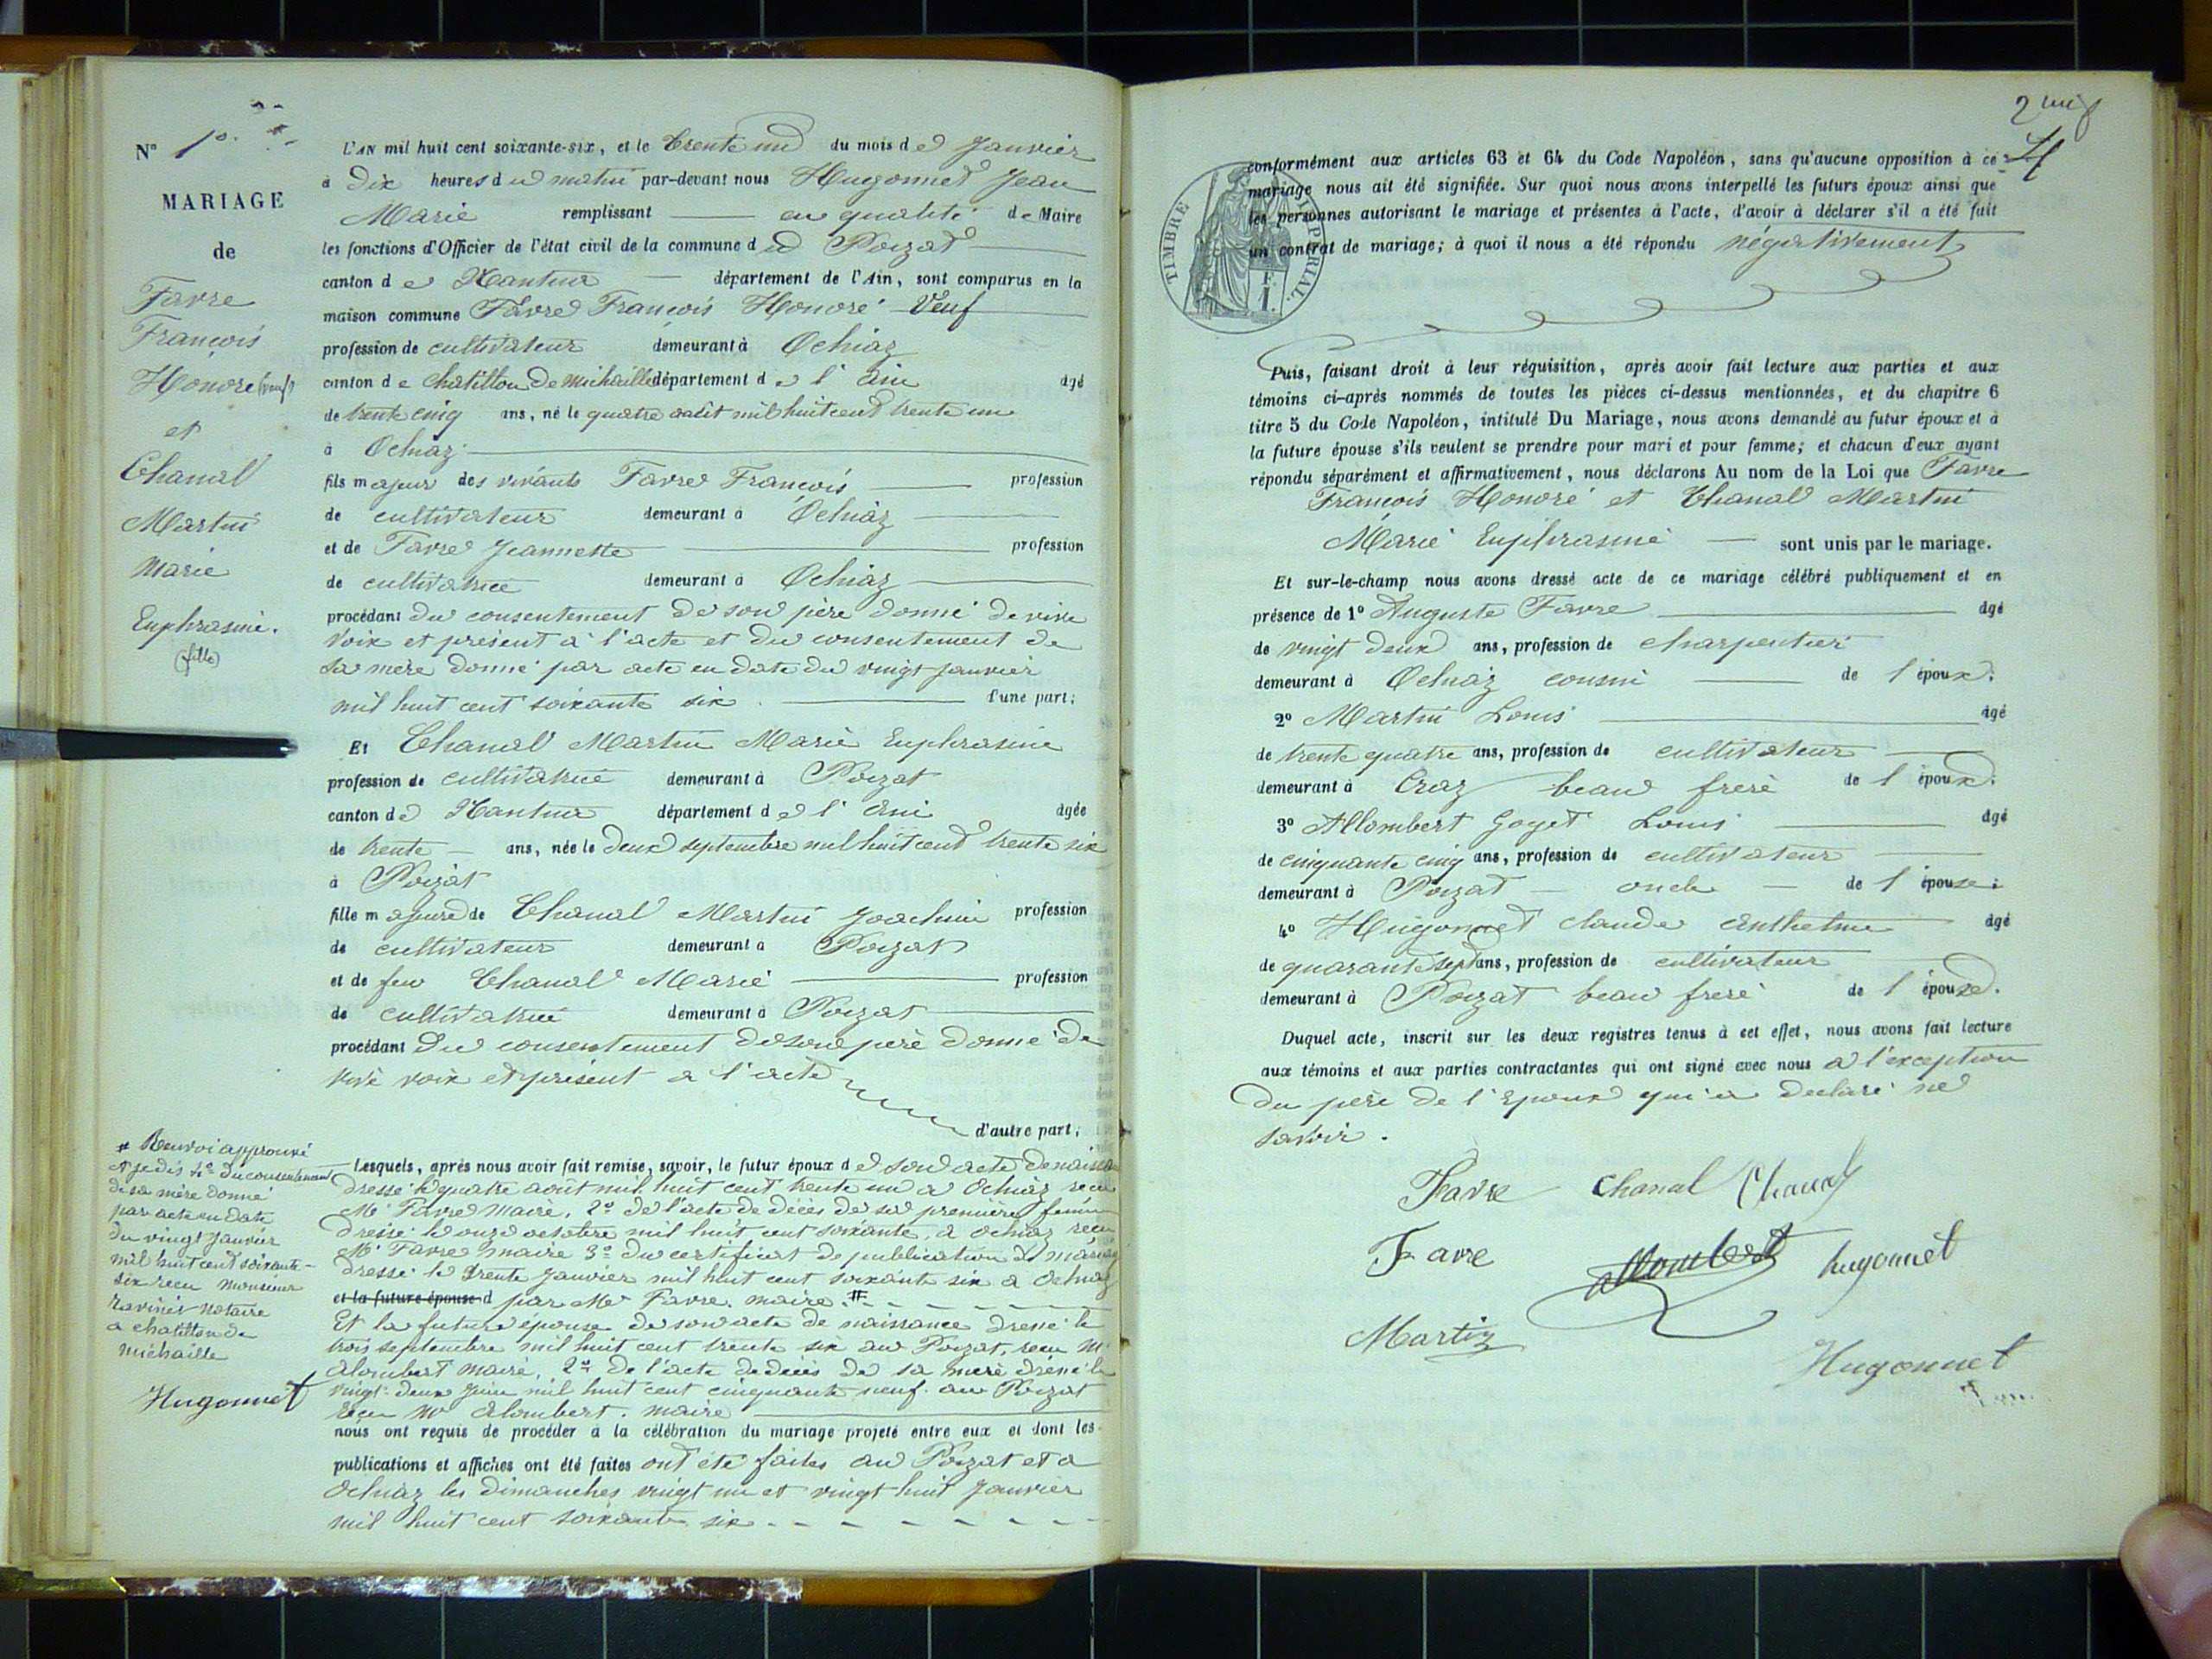 N° 1er
MARIAGE
de
Favre
François
Honoré (veuf)
et
Chanal
Martin
Marie
Euphrasine.
(fille)
L'AN mil huit cent soixante-six, et le trente un du mois de Janvier
à Dix heures du matin par-devant nous Hugonnet Jean
Marie remplissant en qualité de Maire
les fonctions d'Officier de l'état civil de la commune de Poizat
canton de Nantua département de l'Ain, sont comparus en la
maison commune Favre François Honoré Veuf
profession de cultivateur demeurant à Ochiaz
canton de Chatillon de michaille département de l'ain âgé
de trente cinq ans, né le quatre août mil huit cent trente un
à Ochiaz
fils majeur des vivants Favre François profession
de cultivateur demeurant à Ochiaz
et de Favre Jeannette profession
de cultivatrice demeurant à Ochiaz
procédant du consentement de son père donné de vive
voix et présent à l'acte et du consentement de
sa mère donné par acte en date du vingt janvier
mil huit cent soixante six. d'une part;
Et Chanal Martin Marie Euphrasine
profession de cultivatrice demeurant à Poizat
canton de Nantua département de l'Ain âgée
de trente ans, née le deux septembre mil huit cent trente six
à Poizat
fille majeure de Chanal Martin Joachim profession
de cultivateur demeurant à Poizat
et de feu Chanal Marie profession
de cultivatrice demeurant à Poizat
procédant Du consentement de son père donné de
vive voix et présent a l'acte
d'autre part;
Lesquels, après nous avoir fait remise, savoir, le futur époux de son acte de naissance
dressé le quatre août mil huit cent trente un a Ochiaz recu
Mr Favre Maire, 2° de l'acte de décès de sa première femme
dressé le onze octobre mil huit cent soixante, a ochiaz recu
Mr Favre maire 3° du certificat de publication de mariage
dressé le trente janvier mil huit cent soixante six a Ochiaz
et la future épouse d par Mr Favre. maire. #
Et la future épouse de son acte de naissance dressé le
trois septembre mil huit cent trente six au Poizat, recu Mr
Alombert maire, 2° de l'acte de décès de sa mère dressé le
vingt-deux juin mil huit cent cinquante neuf au Poizat
recu Mr Alombert. maire
nous ont requis de procéder à la célébration du mariage projeté entre eux et dont les
publications et affiches ont été faites ont été faites au Poizat et a
Ochiaz les dimanches vingt un et vingt huit Janvier
mil huit cent soixante six
# Renvoi approuvé
et je dis 4° du consentement
de sa mère donné
par acte en date
du vingt janvier
mil huit cent soixante-
six recu monsieur
Ravinet notaire
a chatillon de
michaille
Hugonnet
conformément aux articles 63 et 64 du Code Napoléon, sans qu'aucune opposition à ce
mariage nous ait été signifiée. Sur quoi nous avons interpellé les futurs époux ainsi que
les personnes autorisant le mariage et présentes à l'acte, d'avoir à déclarer s'il a été fait
un contrat de mariage; à quoi il nous a été répondu négativement
TIMBRE IMPÉRIAL.
F.
1.
Puis, faisant droit à leur réquisition, après avoir fait lecture aux parties et aux
témoins ci-après nommés de toutes les pièces ci-dessus mentionnées, et du chapitre 6
titre 5 du Code Napoléon, intitulé Du Mariage, nous avons demandé au futur époux et à
la future épouse s'ils veulent se prendre pour mari et pour femme; et chacun d'eux ayant
répondu séparément et affirmativement, nous déclarons Au nom de la Loi que Favre
François Honoré et Chanal Martin
Marie Euphrasine sont unis par le mariage.
Et sur-le-champ nous avons dressé acte de ce mariage célébré publiquement et en
présence de 1° Auguste Favre âgé
de vingt deux ans, profession de charpentier
demeurant à Ochiaz cousin de l'époux;
2° Martin Louis âgé
de trente quatre ans, profession de cultivateur
demeurant à Craz beau frere de l'époux;
3° Allombert Goget Louis âgé
de cinquante cinq ans, profession de cultivateur
demeurant à Poizat oncle de l'épouse;
4° Hugonnet claude Anthelme âgé
de quarante sept ans, profession de cultivateur
demeurant à Poizat beau frere de l'épouse.
Duquel acte, inscrit sur les deux registres tenus à cet effet, nous avons fait lecture
aux témoins et aux parties contractantes qui ont signé avec nous a l'exception
du père de l'Epoux qui a declaré ne
savoir.
Favre Chanal Chanal
Favre Allombert hugonnet
Martin
Hugonnet